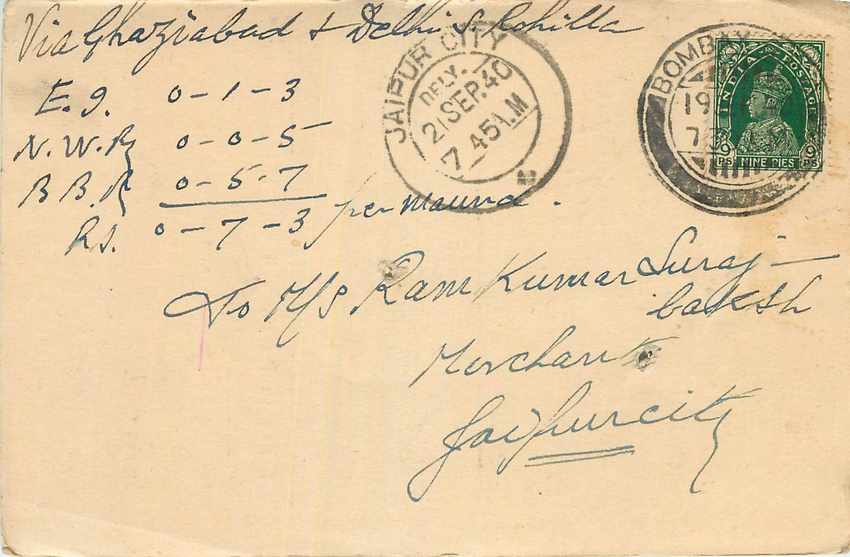 Via Ghaziabad & Delhi S. Rohilla
E. I. 0-1-3
N. W. Ry 0-0-5
B B. Ry 0-5-7
Rs. 0-7-3 per maund.
JAIPUR CITY
DELY.
21 SEP. 40
7 45 A.M
BOMBAY
19
INDIA POSTAGE
9 PS NINE PIES 9 PS
To M/s Ram Kumar Suraj-
baksh
Merchant
Jaipur city